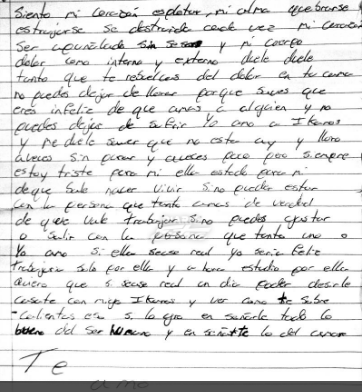 Siento mi corazón explotar, mi alma quebrarse
estrujarse se destruido cada vez mi corazón
Ser apuñalado sin y mi cuerpo
dolor como interno y externo duele duele
tanto que te resuelcas del dolor en tu cama
no puedes dejar de llorar porque sabes que
eres infeliz de que amas a alguien y no
puedes dejar de sufrir Yo amo a
y me duele saver que no esta aqy y lloro
aveces sin parar y aveces poco pero siempre
estoy triste pero ni ella estado para mi
de que sale nacer vivir Sino puedes estar
con la persona que tanto amas de verdad
de que vale trabajar Sino puedes gastar
o salir con la persona que tanto uno
Yo amo si ella sease real yo seria feliz
trabajaria solo por ella y ahora estudio por ella
quiero que si sease real un dia poder desirle
casate con migo y ver como te
en s lo todo lo
bueno del Ser humano y lo del amor
Te
amo